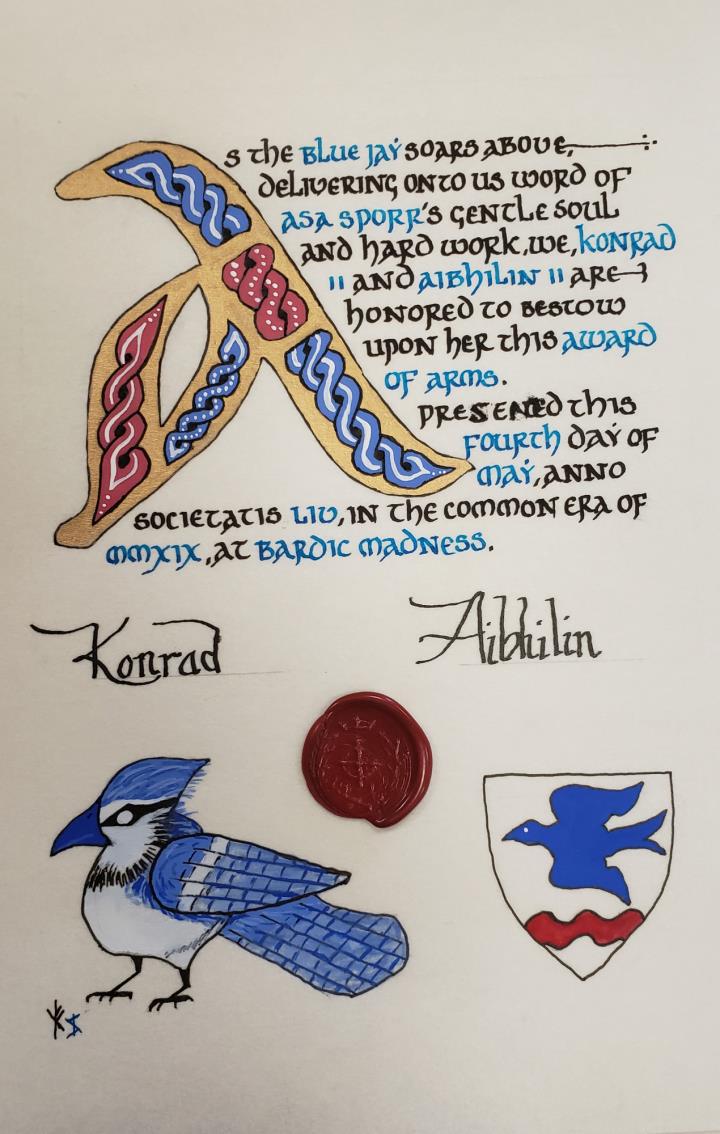 As the Blue Jay soars above,
delivering onto us word of
Asa Sporr's gentle soul
and hard work, we, Konrad
II and Aibhilin II are
honored to bestow
upon her this Award
of Arms.
Presented this
fourth day of
May, Anno
Societatis LIV, in the common era of
MMXIX, at Bardic Madness.
Konrad
Aibhilin